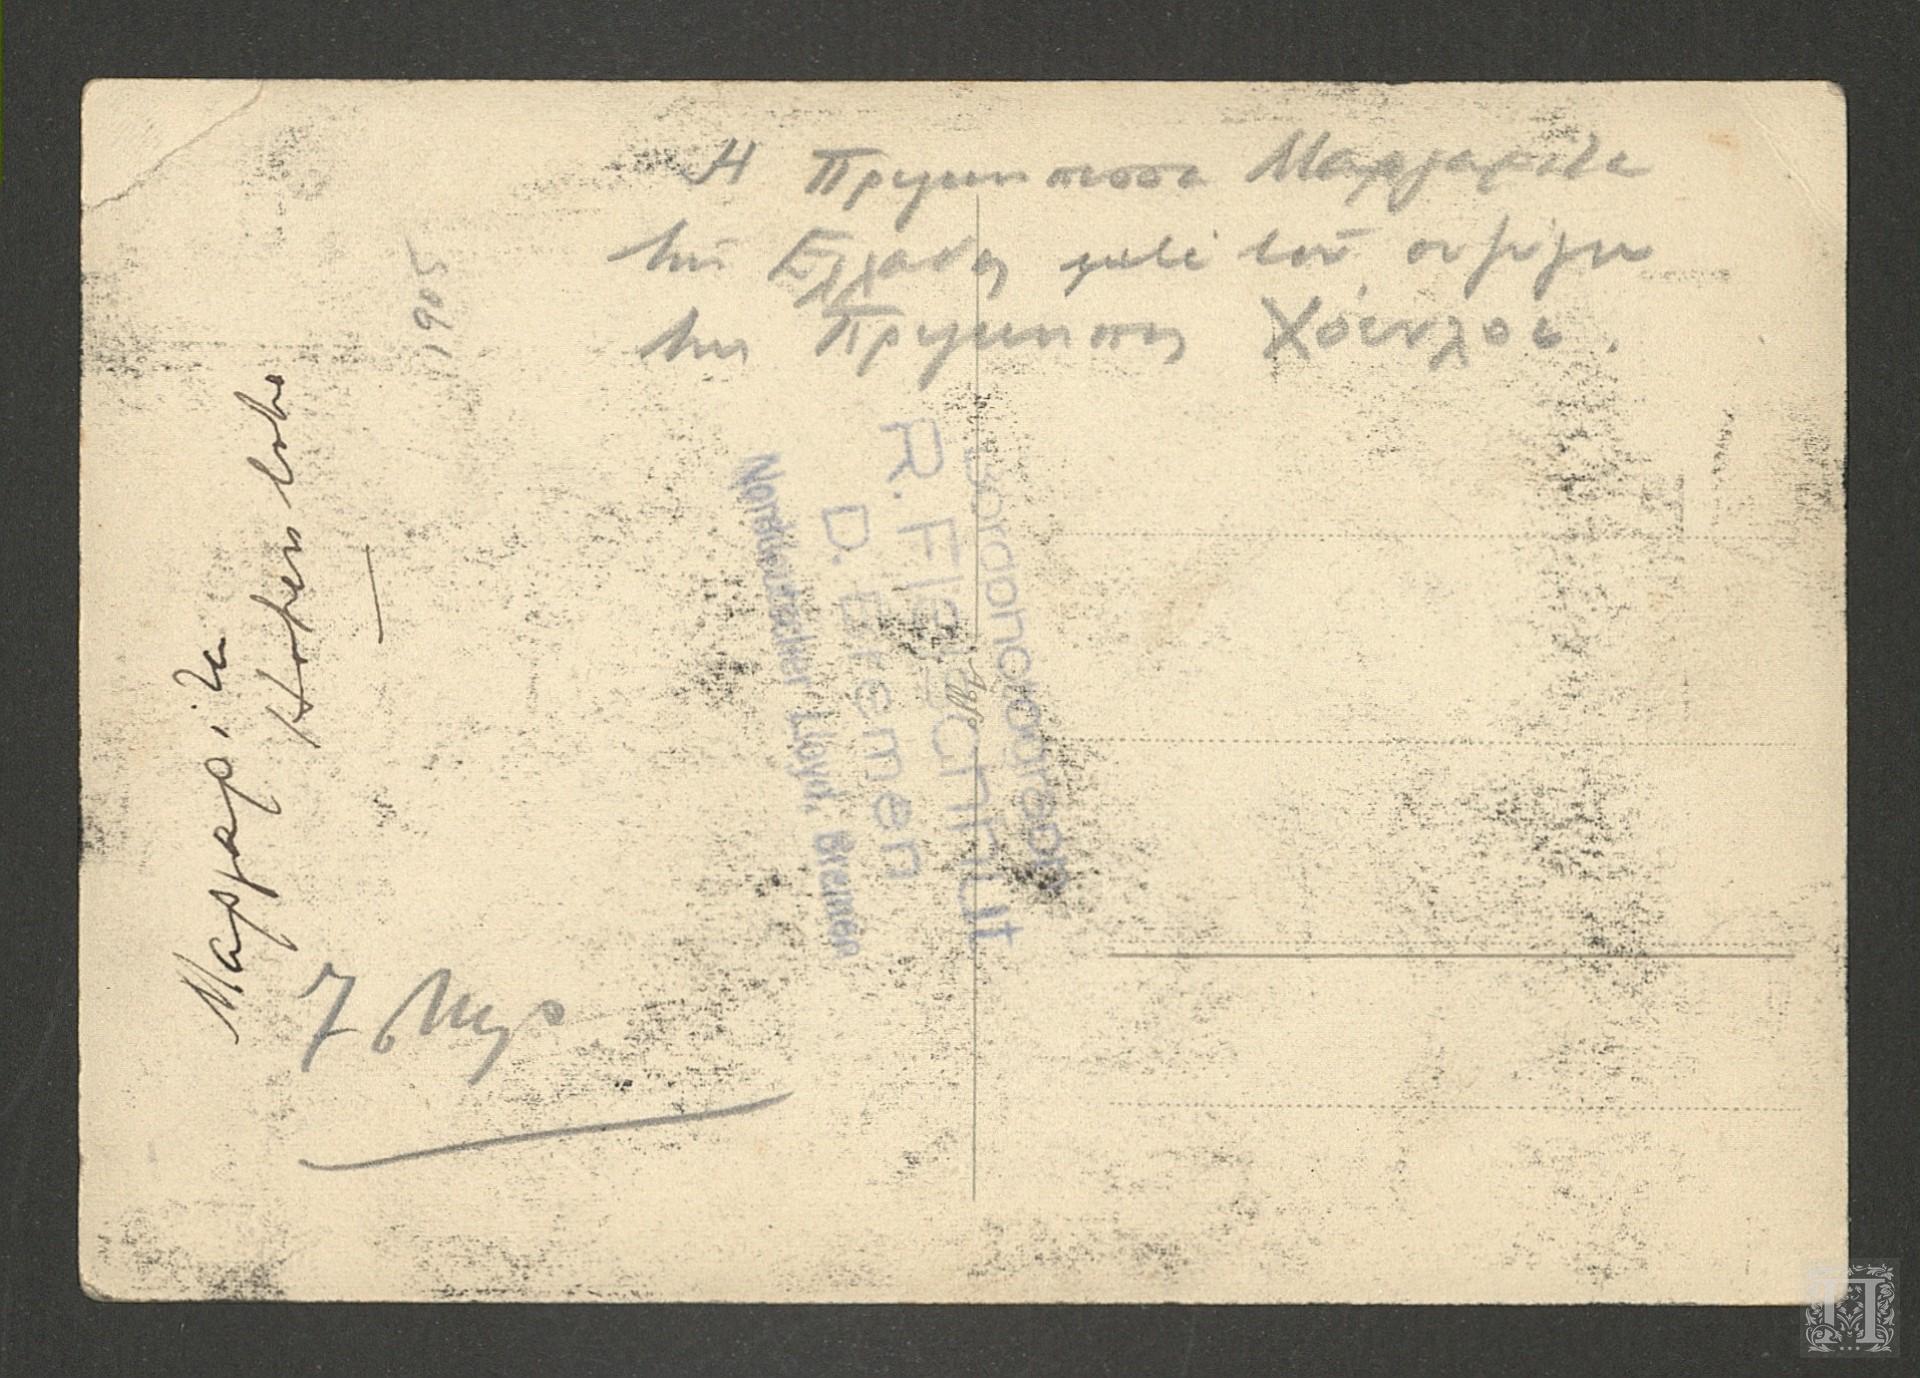 Η Πριγκηπισσα Μαργαριτα
της Ελλαδος μετά του συζύγου
της Πριγκηπος Χόενλοε.
1905
Μαργαρίτα
Hohenlohe
Bordphotograph
R. Fleischhut
D. Bremen
Norddeutscher Lloyd, Bremen
7